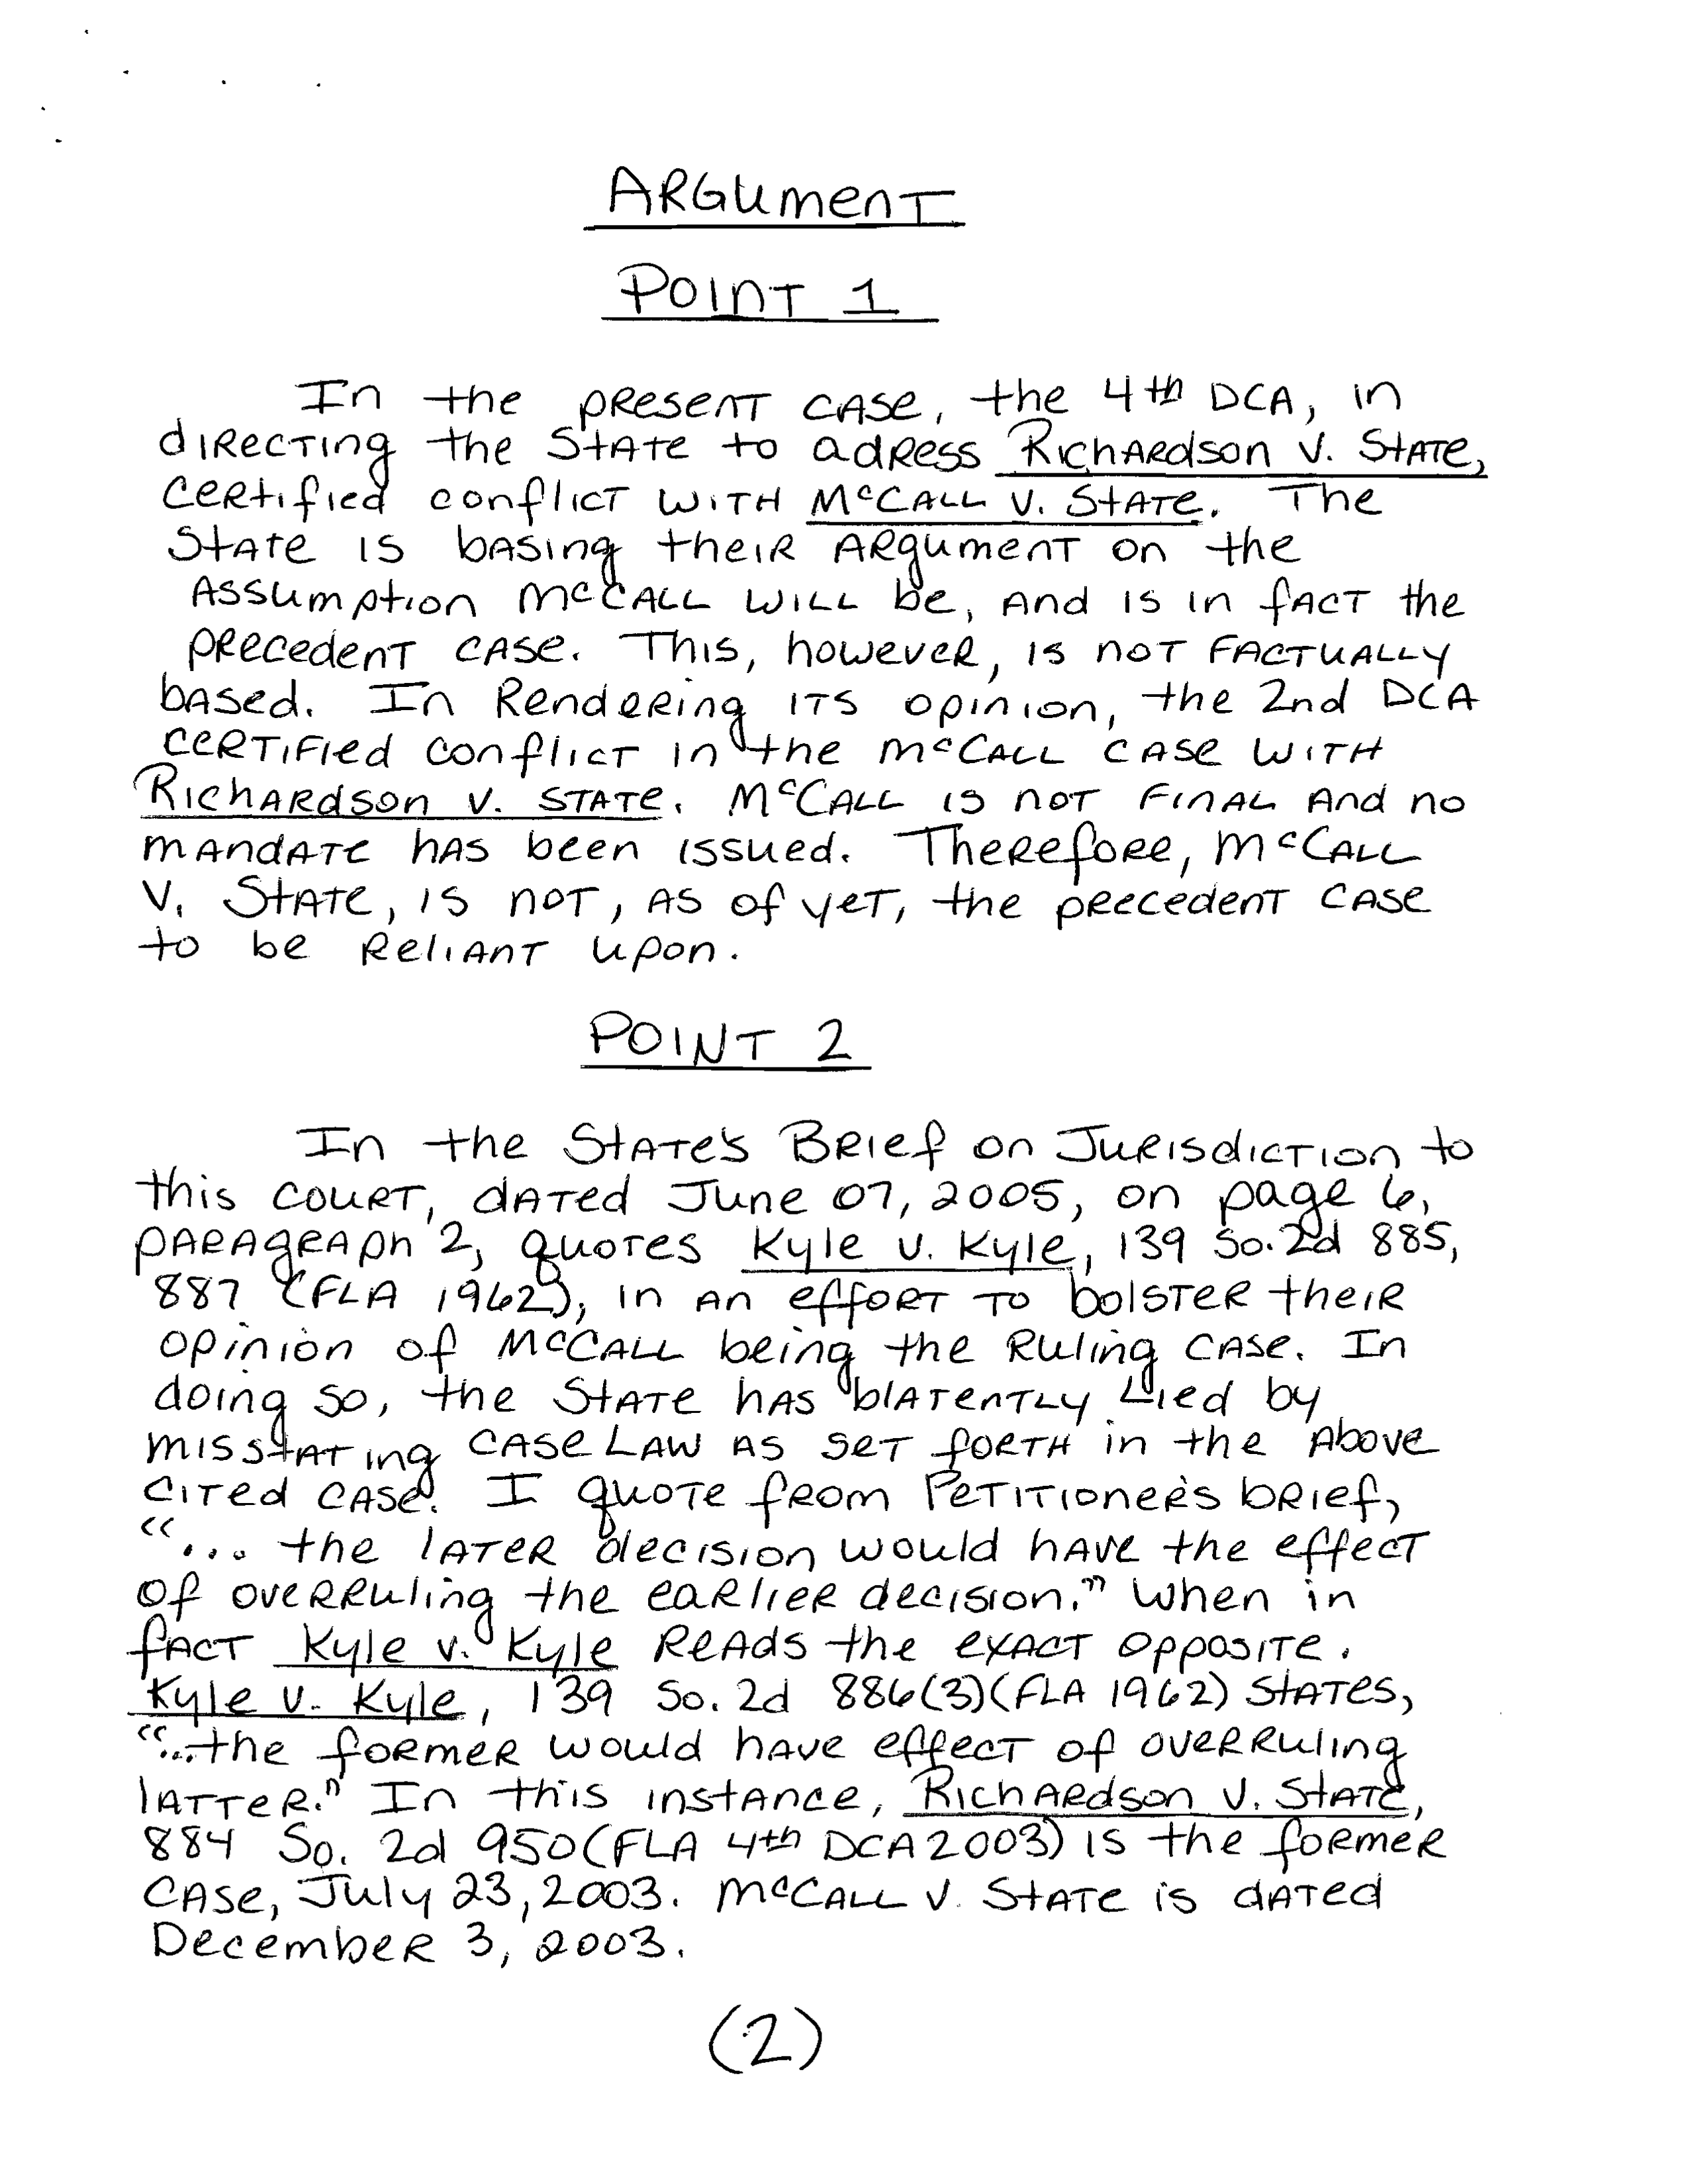 Argument
Point 1
In the present case, the 4th DCA, in
directing the State to adress Richardson v. State,
certified conflict with McCall v. State. The
State is basing their argument on the
assumption McCall will be, and is in fact the
precedent case. This, however, is not factually
based. In rendering its opinion, the 2nd DCA
certified conflict in the McCall case with
Richardson v. State. McCall is not final and no
mandate has been issued. Therefore, McCall
v. State, is not, as of yet, the precedent case
to be reliant upon.
Point 2
In the State's Brief on Jurisdiction to
this court, dated June 07, 2005, on page 6,
paragraph 2, quotes Kyle v. Kyle, 139 So. 2d 885,
887 (FLA 1962), in an effort to bolster their
opinion of McCall being the ruling case. In
doing so, the State has blatently lied by
misstating case law as set forth in the above
cited case. I quote from Petitioner's brief,
"... the later decision would have the effect
of overruling the earlier decision." When in
fact Kyle v. Kyle reads the exact opposite.
Kyle v. Kyle, 139 So. 2d 886(3)(FLA 1962) states,
"...the former would have effect of overruling
latter." In this instance, Richardson v. State,
884 So. 2d 950 (FLA 4th DCA 2003) is the former
case, July 23, 2003. McCall v. State is dated
December 3, 2003.
(2)